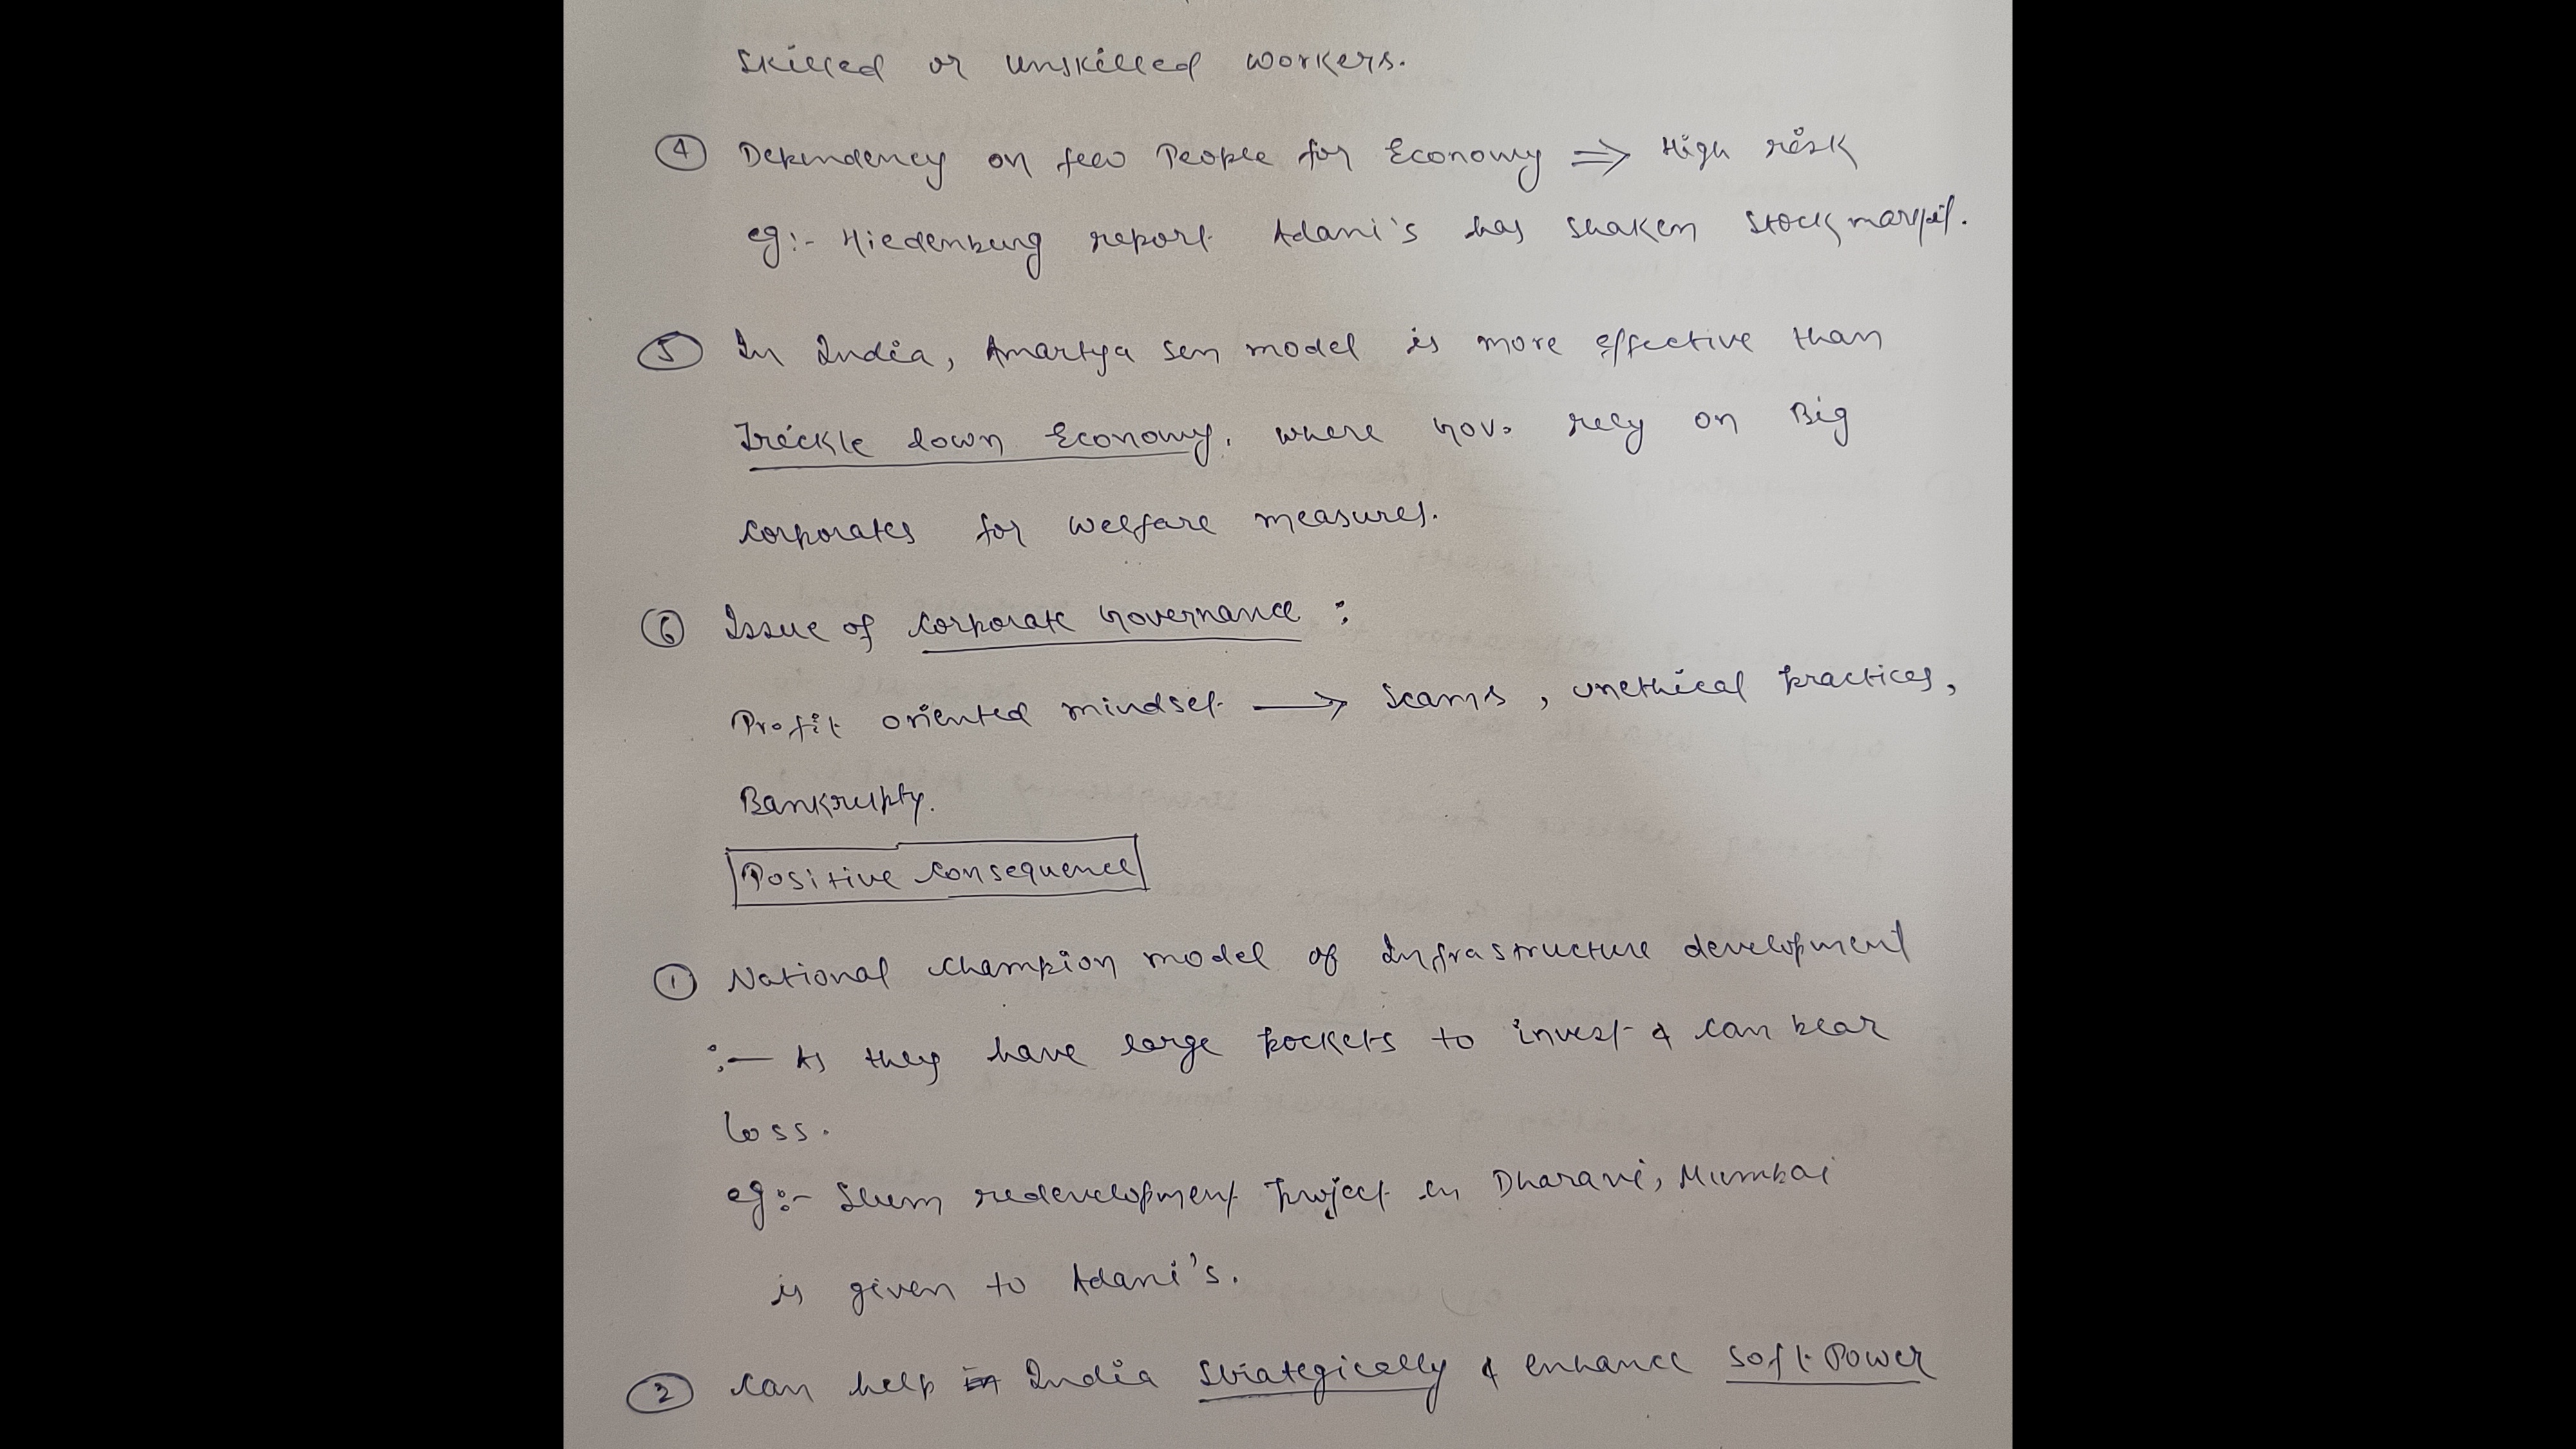 Skilled or unskilled workers.
④ Dependency on few People for Economy ⇒ High risk
eg:- Hiedenburg report Adani's has shaken stock market.
⑤ In India, Amartya Sen model is more effective than
Trickle down Economy, where Gov. rely on Big
Corporates for welfare measures.
⑥ Issue of Corporate Governance :
Profit oriented mindset → Scams, unethical practices,
Bankrupty.
Positive Consequence
① National Champion model of Infrastructure development
:- As they have large pockets to invest & can bear
loss.
eg:- Slum redevelopment project in Dharavi, Mumbai
is given to Adani's.
② Can help India Strategically & enhance Soft Power